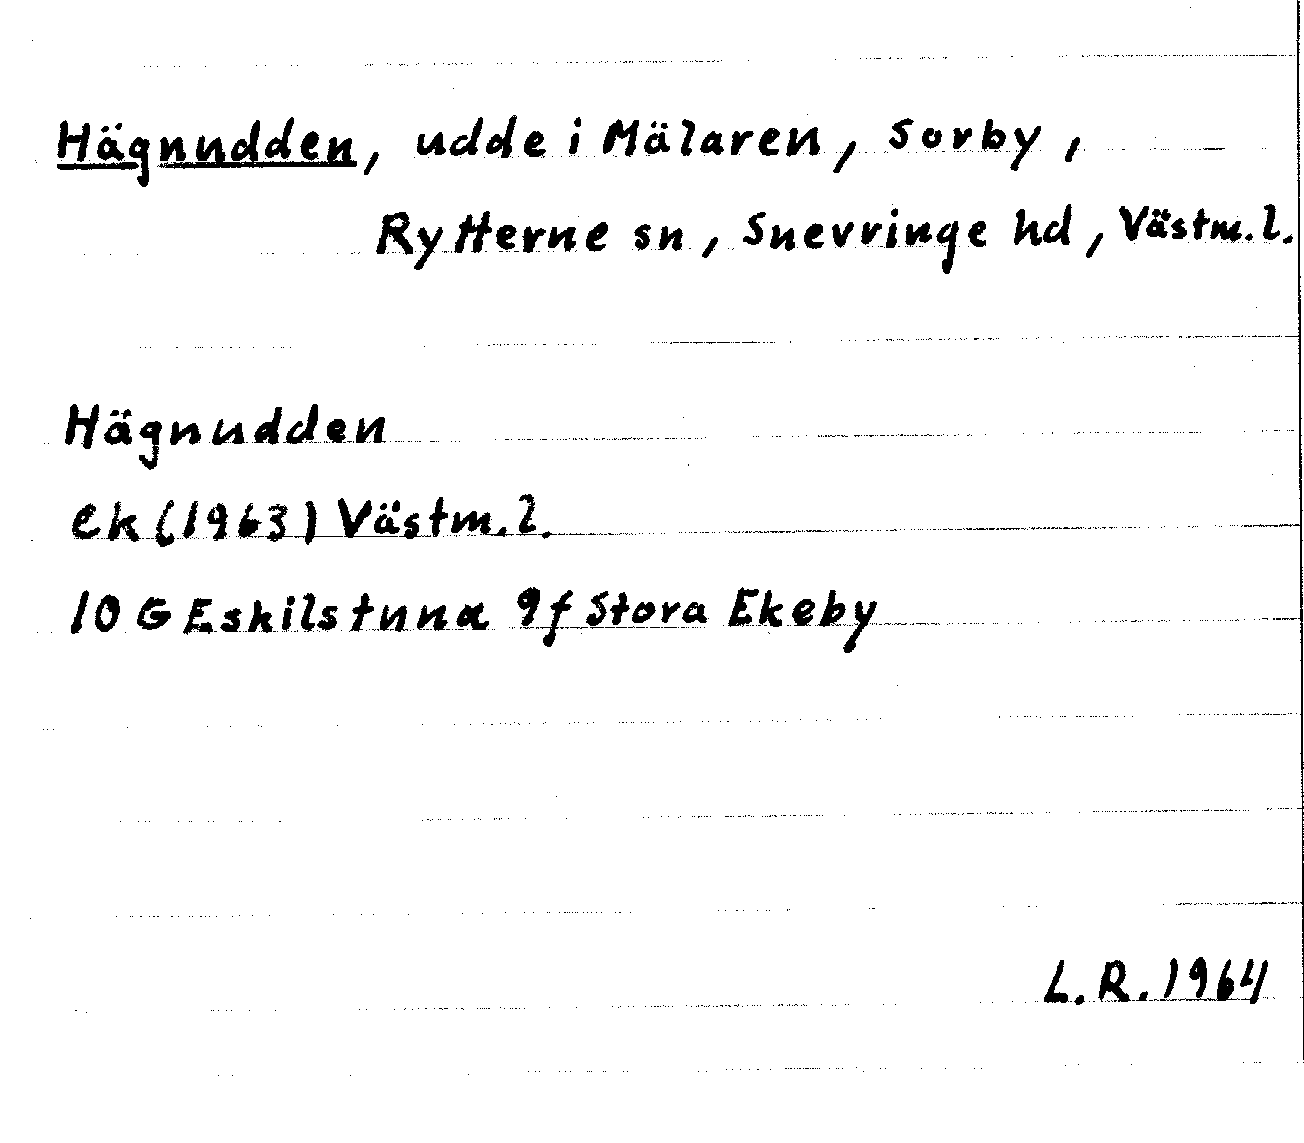 Hägnudden, udde i Mälaren, Sorby,
Rytterne sn, Snevringe hd, Västm.l.
Hägnudden
ek (1963) Västm.l.
10 G Eskilstuna 9f Stora Ekeby
L.R. 1964